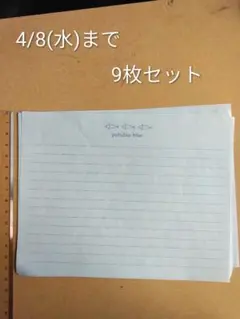 4/8(水)まで
9枚セット
paradise blue